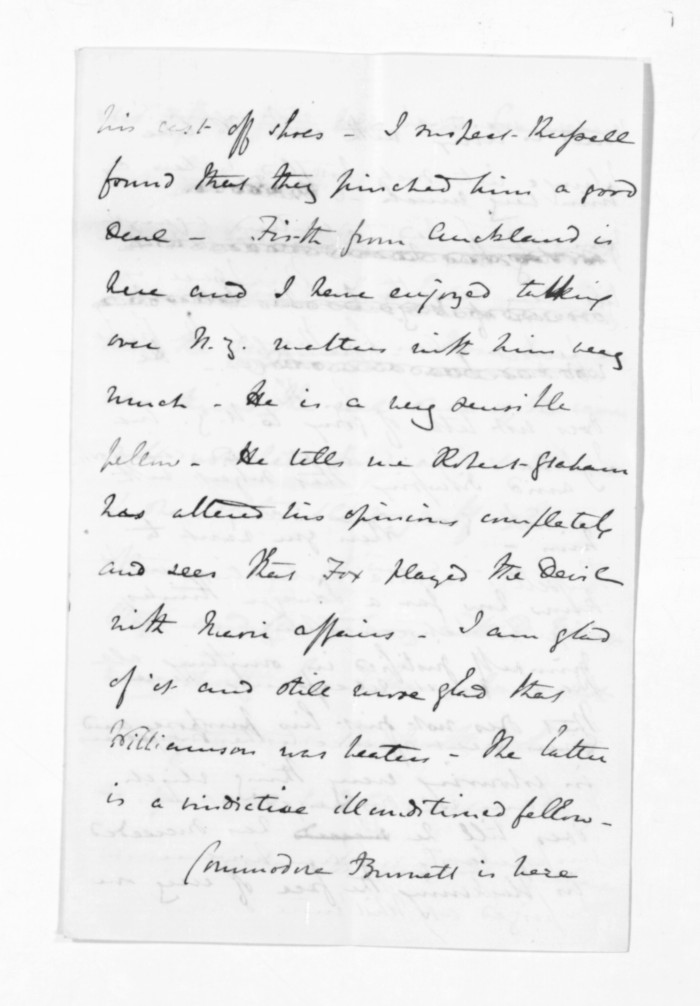 his cast off shoes - I suspect Russell
found that they pinched him a good
deal - Firth from Auckland is
here and I have enjoyed talking
over N.Z. matters with him very
much - He is a very sensible
fellow - He tells me Robert Graham
has altered his opinions completely
and sees that Fox played the Devil
with Maori affairs - I am glad
of it and still more glad that
Williamson was beaten - The latter
is a vindictive illconditioned fellow -
Commodore Burnett is here